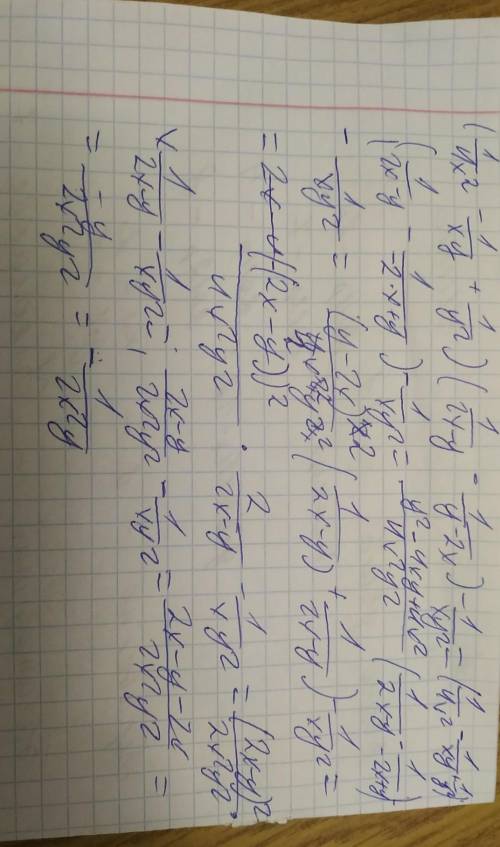 (1/4x² - 1/xy + 1/y²) (1/2x-y - 1/y-2x) - 1/xy² = (1/4x² - 1/xy + 1/y²)
(1/2x-y - 1/-2x+y) - 1/xy² = y²-4xy+4x²/4x²y² (1/2x-y - 1/-2x+y)
- 1/xy² = (y-2x)²/4x²y² (1/2x-y) + 1/2x-y) - 1/xy² =
= (2x-y)²/4x²y² · 2/2x-y - 1/xy² = (2x-y)²/2x²y² ·
× 1/2x-y - 1/xy² = 2x-y/2x²y² - 1/xy² = 2x-y-2x/2x²y² =
= -y/2x²y² = - 1/2x²y